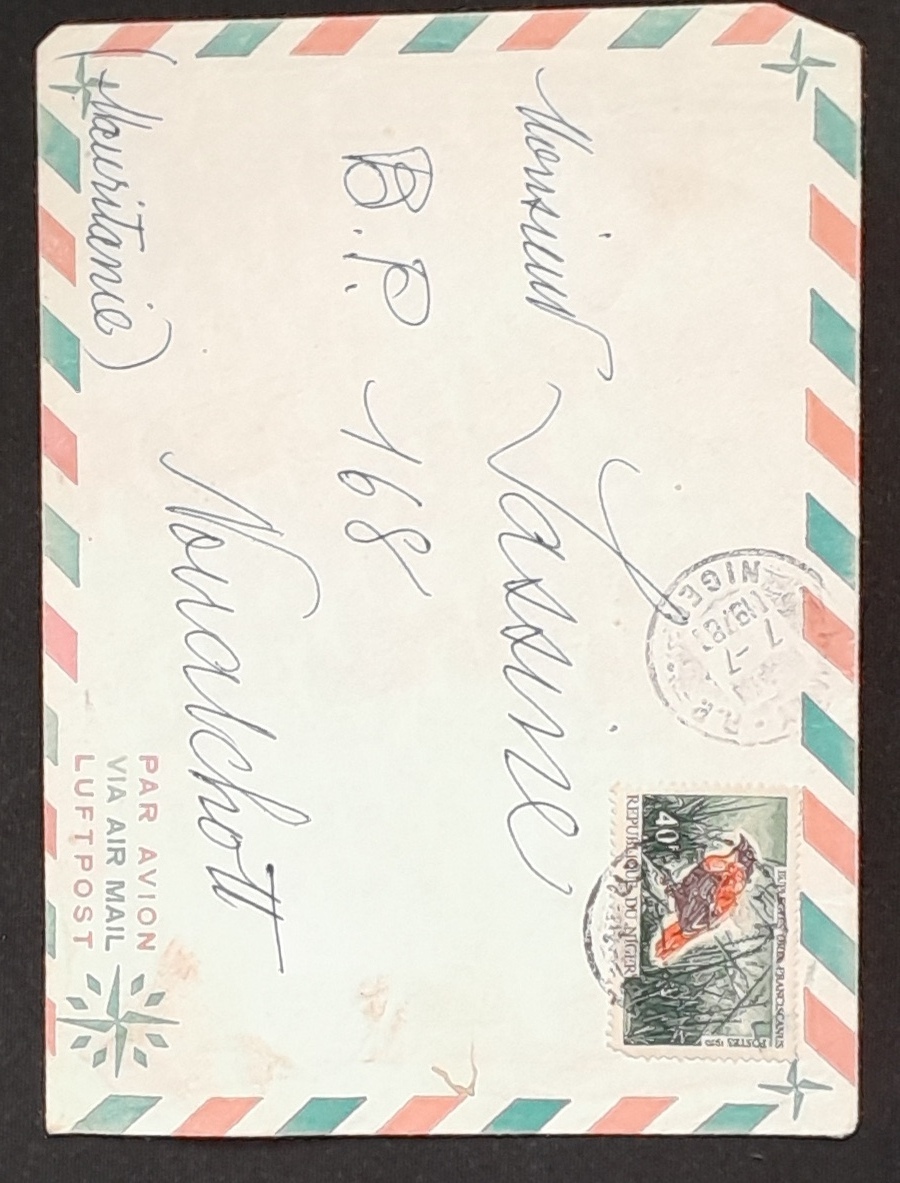 Monsieur Yassine
B.P. 168
Nouakchott
(Mauritanie)
PAR AVION
VIA AIR MAIL
LUFTPOST
NIGER
7-7
1978
EUPLECTES ORIX FRANCISCANUS
40F
REPUBLIQUE DU NIGER
POSTES 1970